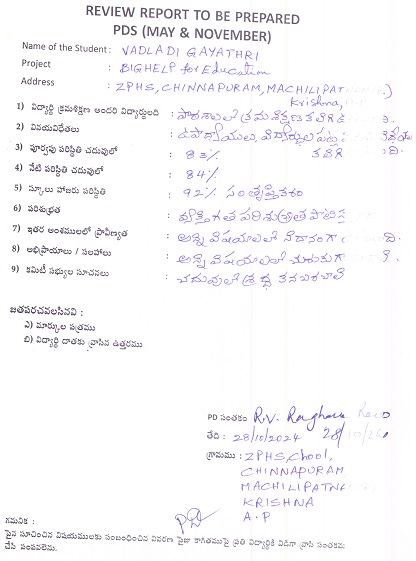 REVIEW REPORT TO BE PREPARED
PDS (MAY & NOVEMBER)
Name of the Student: VADLADI GAYATHRI
Project : BIGHELP for Education
Address : ZPHS, CHINNAPURAM, MACHILIPAT
Krishna,
1) విద్యార్థి క్రమశిక్షణ అందరి విద్యార్థులది : పాఠశాలలో క్రమశిక్షణ కలిగి
2) వినయవిధేతలు : ఉపాధ్యాయులు, విద్యార్థుల పట్ల
3) పూర్వపు పరిస్థితి చదువులో : 83%
4) నేటి పరిస్థితి చదువులో : 84%
5) స్కూలు హాజరు పరిస్థితి : 92% సంతృప్తికరం
6) పరిశుభ్రత : వ్యక్తిగత పరిశుభ్రత
7) ఇతర అంశములలో ప్రావీణ్యత : అన్ని విషయాలలో
8) అభిప్రాయాలు / సలహాలు : అన్ని విషయాలలో చురుకుగా
9) కమిటీ సభ్యుల సూచనలు : చదువులో శ్రద్ధ కనబరచాలి
జతపరచవలసినవి :
ఎ) మార్కుల పత్రము
బి) విద్యార్థి దాతకు వ్రాసిన ఉత్తరము
PD సంతకం : R.V. Raghava Rao
తేది : 28/10/2024 28/10/24
గ్రామము : ZPHS, Chool,
CHINNAPURAM
MACHILIPATNA
KRISHNA
A.P
గమనిక :
పైన సూచించిన విషయములకు సంబంధించిన వివరణ పైజు కాగితముపై ప్రతి విద్యార్థికి విడిగా వ్రాసి సంతకము
చేసి పంపవలెను.